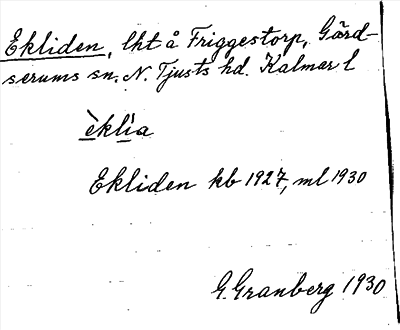 Ekliden, lht å Friggestorp, Gärd-
serums sn. N. Tjusts hd. Kalmar l
èklìa
Ekliden kb 1927, ml 1930
G. Granberg 1930